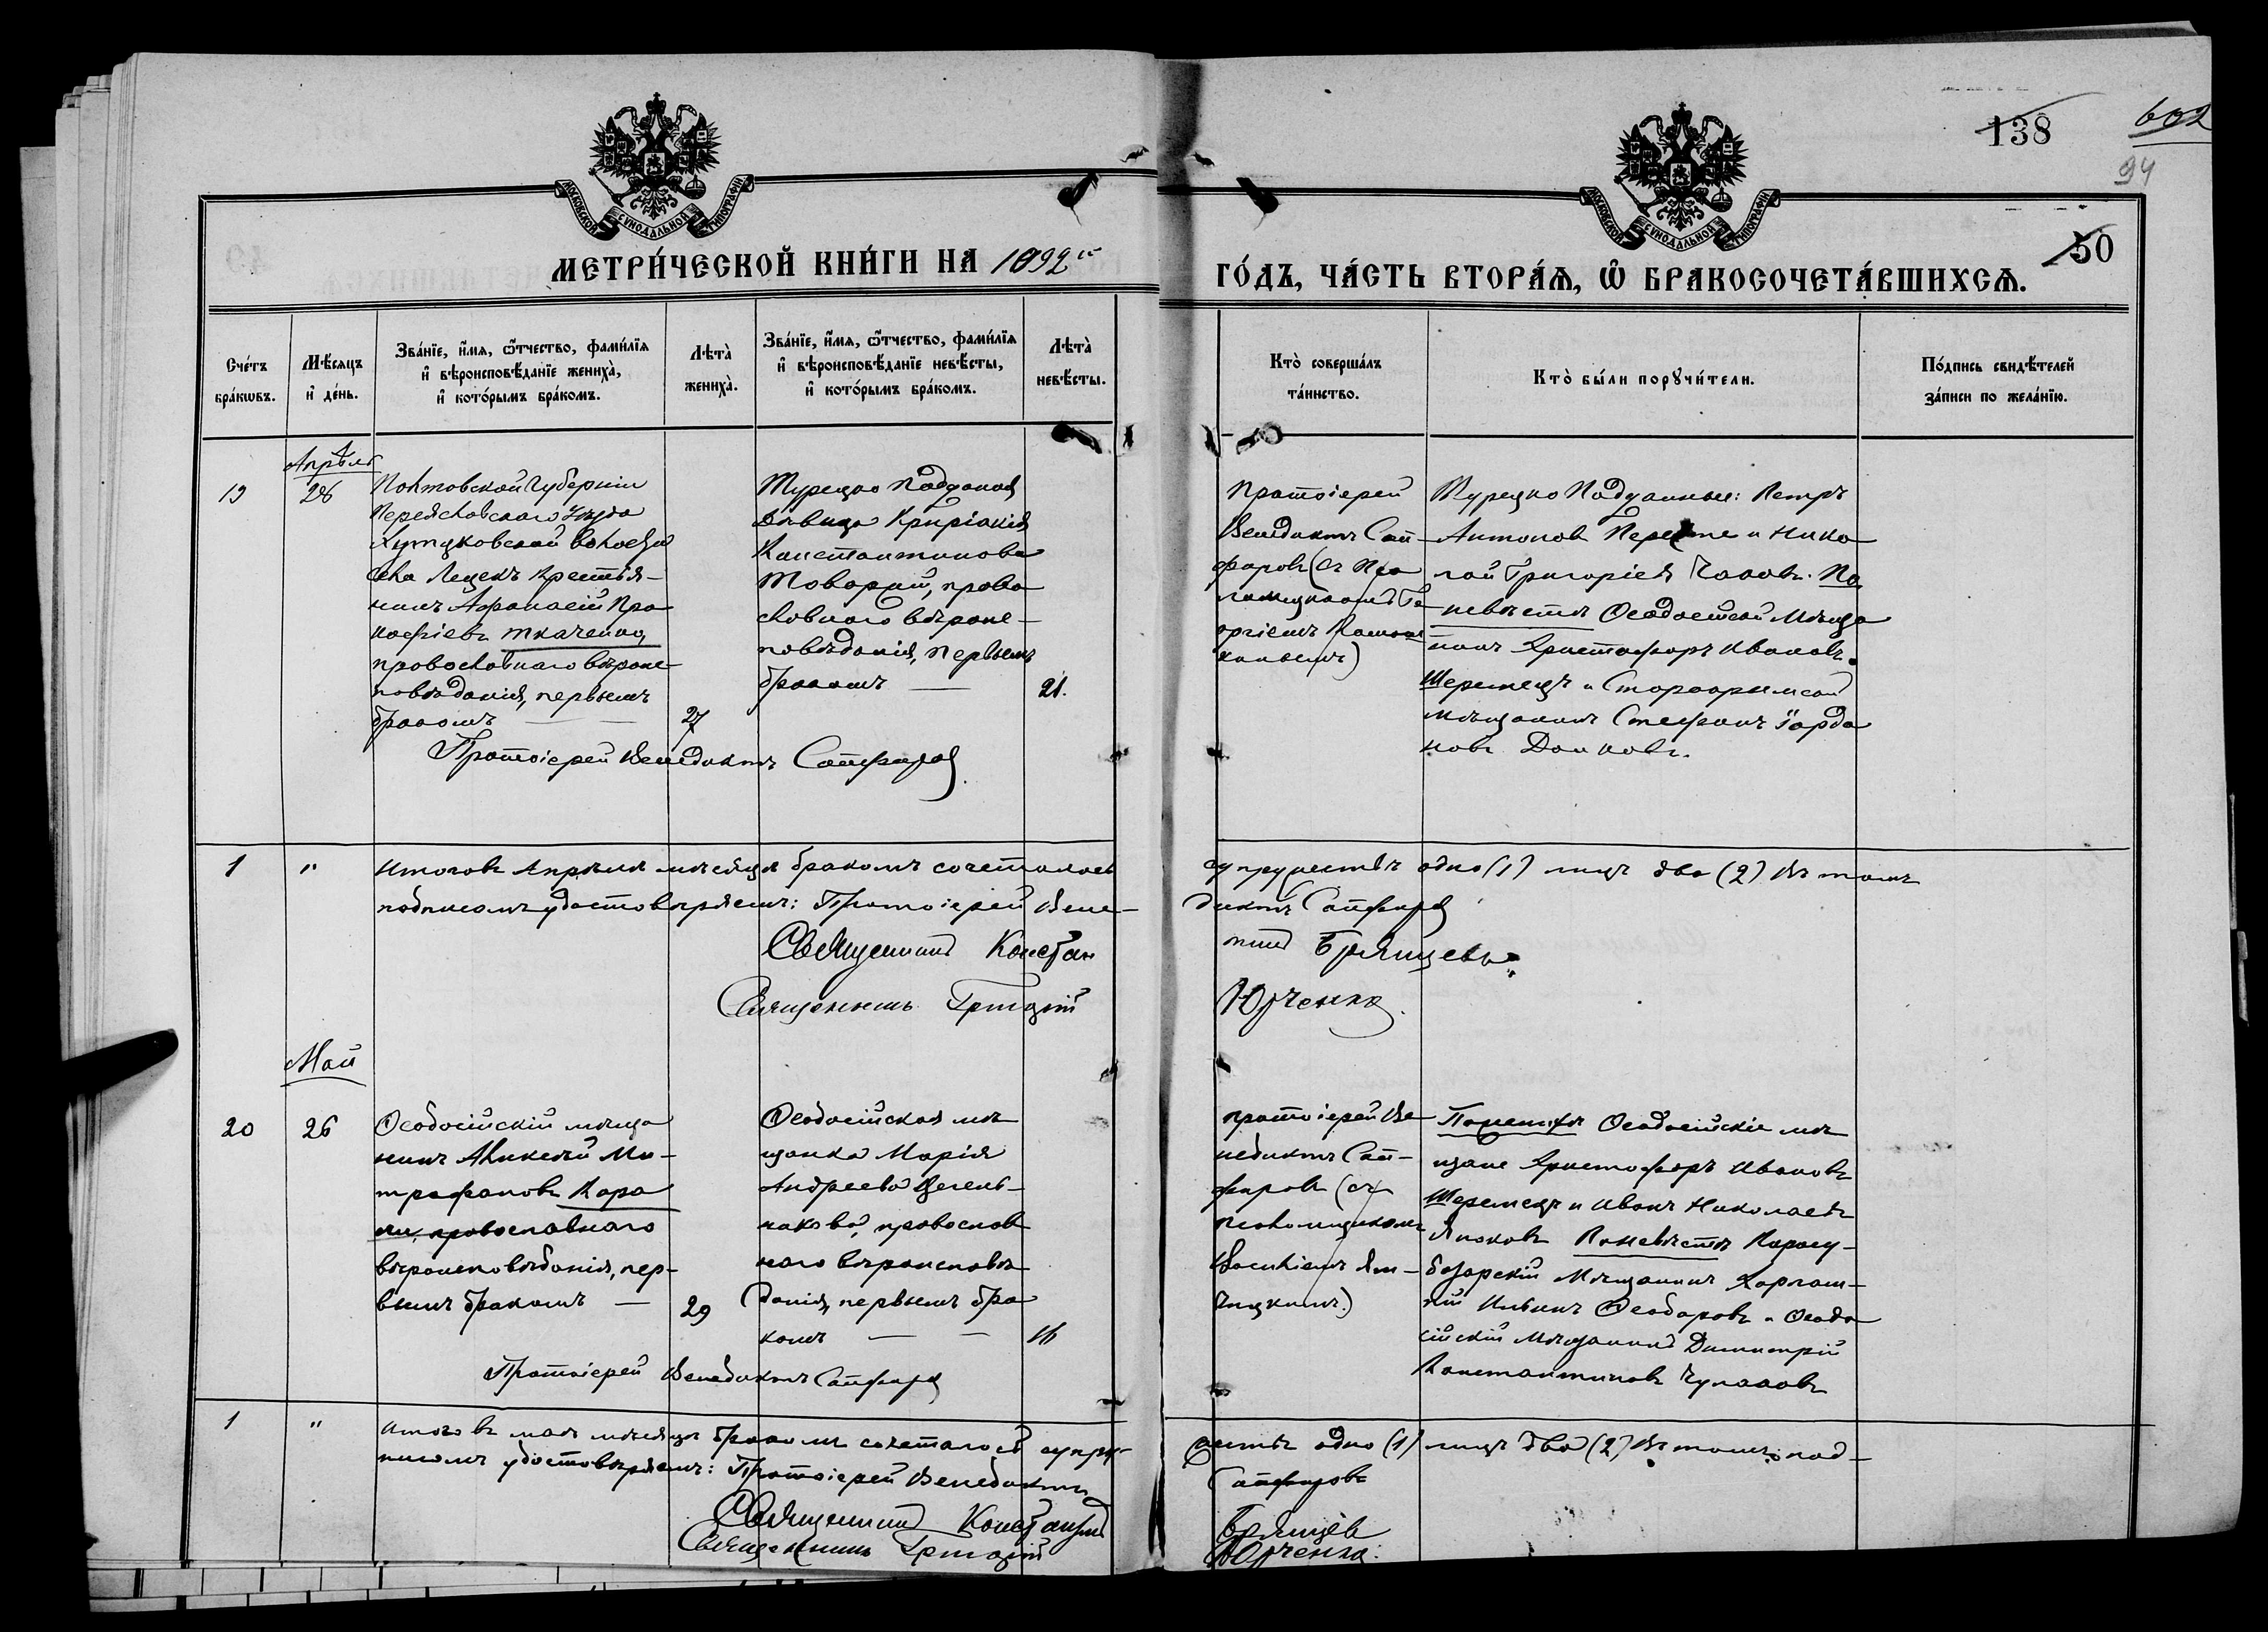 138
94
50
МОСКОВСКОЙ СУНОДАЛЬНОЙ ТИПОГРАФІИ
МОСКОВСКОЙ СУНОДАЛЬНОЙ ТИПОГРАФІИ
МЕТРИ́ЧЕСКОЙ КНИ́ГИ НА 1892й
ГО́ДЪ, ЧА́СТЬ ВТОРА́Я, Ѽ БРАКОСОЧЕТА́ВШИХСѦ.
Сче́тъ бра́кѡвъ.
Мѣ́сяцъ и҆ де́нь.
Зва́нїе, и҆́мя, ѻ҆́тчество, фами́лїя
и҆ вѣроисповѣ́данїе жениха̀,
и҆ кото́рымъ бра́комъ.
Лѣта̀ жениха̀.
Зва́нїе, и҆́мя, ѻ҆́тчество, фами́лїя
и҆ вѣроисповѣ́данїе невѣ́сты,
и҆ кото́рымъ бра́комъ.
Лѣта̀ невѣ́сты.
Кто̀ соверша́лъ та́инство.
Кто̀ бы́ли порꙋчи́тели.
По́дпись свидѣ́телей за́писи по жела́нїю.
Апрѣль
19
26
Полтовской Губерніи
Переясловскаго Уезда
волости
села Лецекъ Крестья-
нинъ Афонасій Про
кофіевъ Ткаченко,
провословнаго вѣроис-
повѣданія, первымъ
бракомъ
27
ТурецкоПодданая
Дѣвица Киріакія
Константинова
провo
словнаго вѣроис-
повѣданія, первымъ
бракомъ
21.
Протоіерей
Венедиктъ Сап-
фировъ (съ Пса
ломщикомъ Ге
оргіемъ
Турецко Подданные: Петръ
Антоновъ и Нико
лай Григорієв По
невѣстѣ Ѳеодосійскій Мѣща
нинъ Христофоръ Ивановъ
Шеремецъ и Старокрымскій
мѣщанинъ Стефанъ Іорда
новъ Донковъ.
Протоіерей Венедиктъ Сапфировъ
1
"
Итого въ Апрѣлѣ мѣсяцѣ бракомъ сочеталось супружествъ одно (1) лицъ два (2) Въ томъ
подписомъ удостовѣряемъ: Протоіерей Венедиктъ Сапфировъ
Священникъ Константинъ Брянцевъ
Священникъ Юрченко
Май
20
26
Ѳеодосійскій мѣща
нинъ Алексѣй Ми-
трофановъ Кара
провославнаго
вѣроисповѣданія, пер-
вымъ бракомъ
29
Ѳеодосійская мѣ
щанка Марія
Андреева
провослав
наго вѣроисповѣ
данія, первымъ бра
комъ
16
протоіерей Ве
недиктъ Сап-
фировъ (съ
псаломщикомъ
Василіемъ Ян-
По женихѣ Ѳеодосійскіе мѣ
щане Христофоръ Ивановъ
Шеремецъ и Иванъ Николаевъ
По невѣстѣ Карасу-
базарскій Мѣщанинъ Харлам-
пій Ильинъ Ѳеодоровъ и Ѳеодо
сійскій Мѣщанинъ Димитрій
Константиновъ
Протоіерей Венедиктъ Сапфировъ
1
"
Итого въ маѣ мѣсяцѣ бракомъ сочеталось супру-
жествъ одно (1) лицъ два (2) Въ томъ под-
писомъ удостовѣряемъ: Протоіерей Венедиктъ Сапфировъ
Священникъ Константинъ Брянцевъ
Священникъ Юрченко.